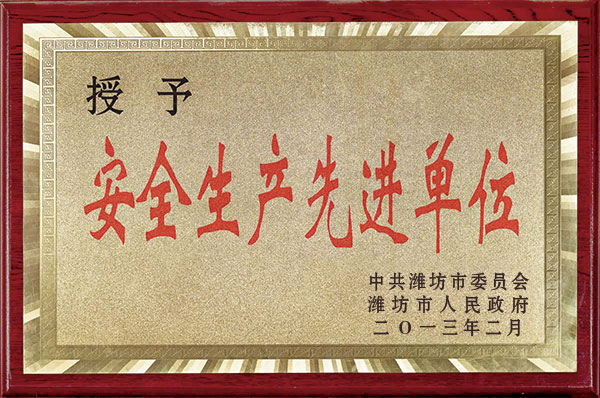 授予
安全生产先进单位
中共潍坊市委员会
潍坊市人民政府
二〇一三年二月